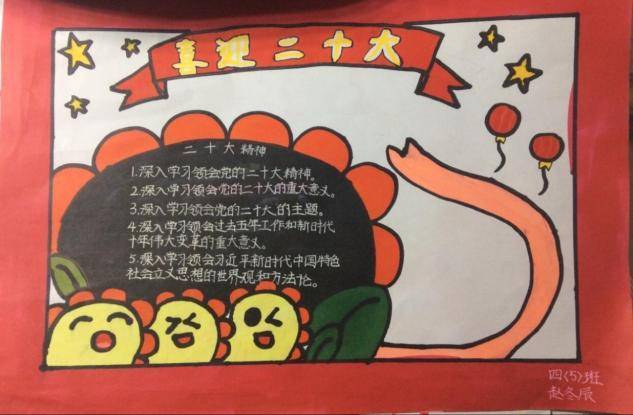 喜迎二十大
二十大精神
1.深入学习领会党的二十大精神。
2.深入学习领会党的二十大的重大意义。
3.深入学习领会党的二十大的主题。
4.深入学习领会过去五年工作和新时代
十年伟大变革的重大意义。
5.深入学习领会习近平新时代中国特色
社会主义思想的世界观和方法论。
四(5)班
赵冬辰